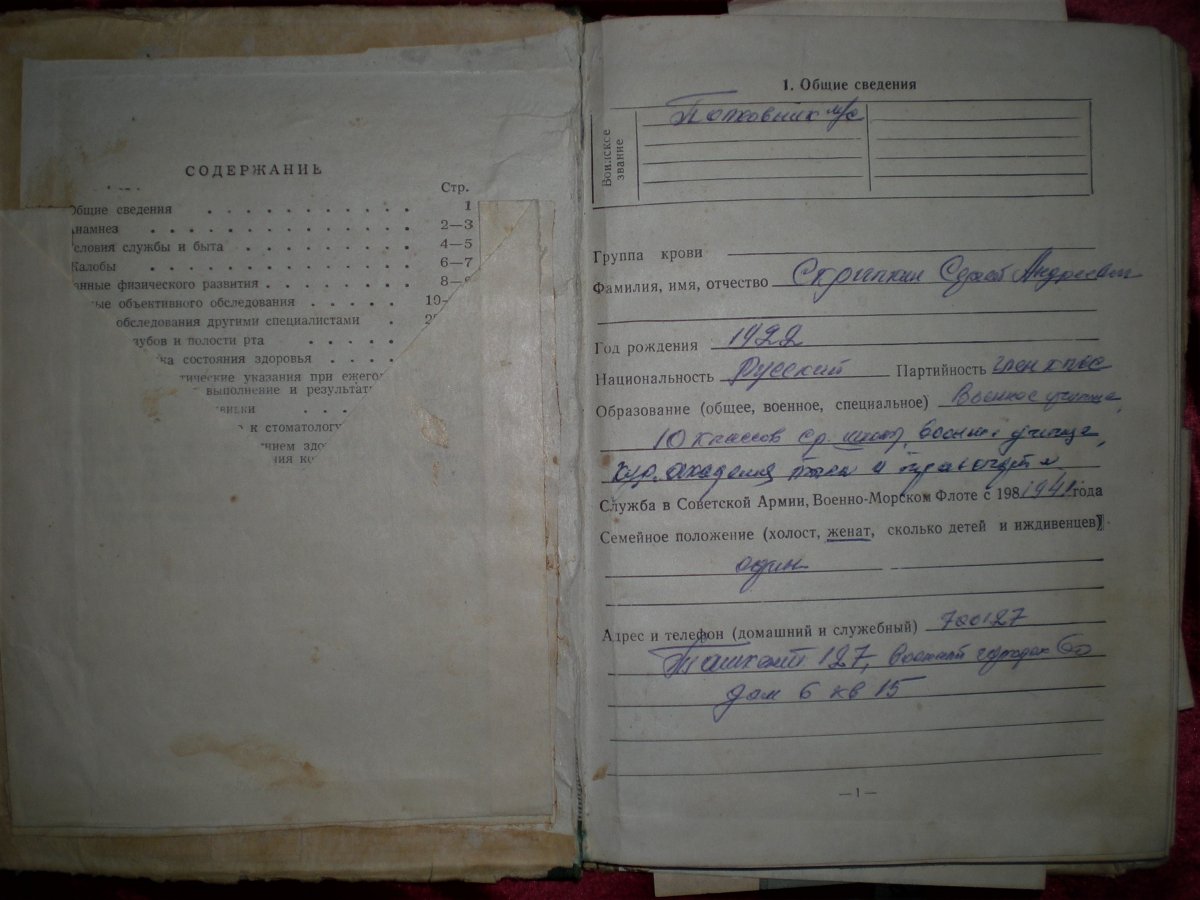 СОДЕРЖАНИЕ
Стр.
Общие сведения 1
Анамнез 2—3
Условия службы и быта 4—5
Жалобы 6—7
анные физического развития 8—
ые объективного обследования 19—
обследования другими специалистами
зубов и полости рта
ка состояния здоровья
тические указания при ежего
выполнение и результат
к стоматологу
нием здо
1. Общие сведения
Воинское звание
Полковник м/с
Группа крови
Фамилия, имя, отчество Скрипкин Андреевич
Год рождения 1922
Национальность Русский Партийность член КПСС
Образование (общее, военное, специальное) Военное училище,
10 классов ср. школ, военное училище,
академия тыла и
Служба в Советской Армии, Военно-Морском Флоте с 198 1941 года
Семейное положение (холост, женат, сколько детей и иждивенцев)
один
Адрес и телефон (домашний и служебный) 700127
Ташкент 127, военный городок
дом 6 кв 15
— 1 —